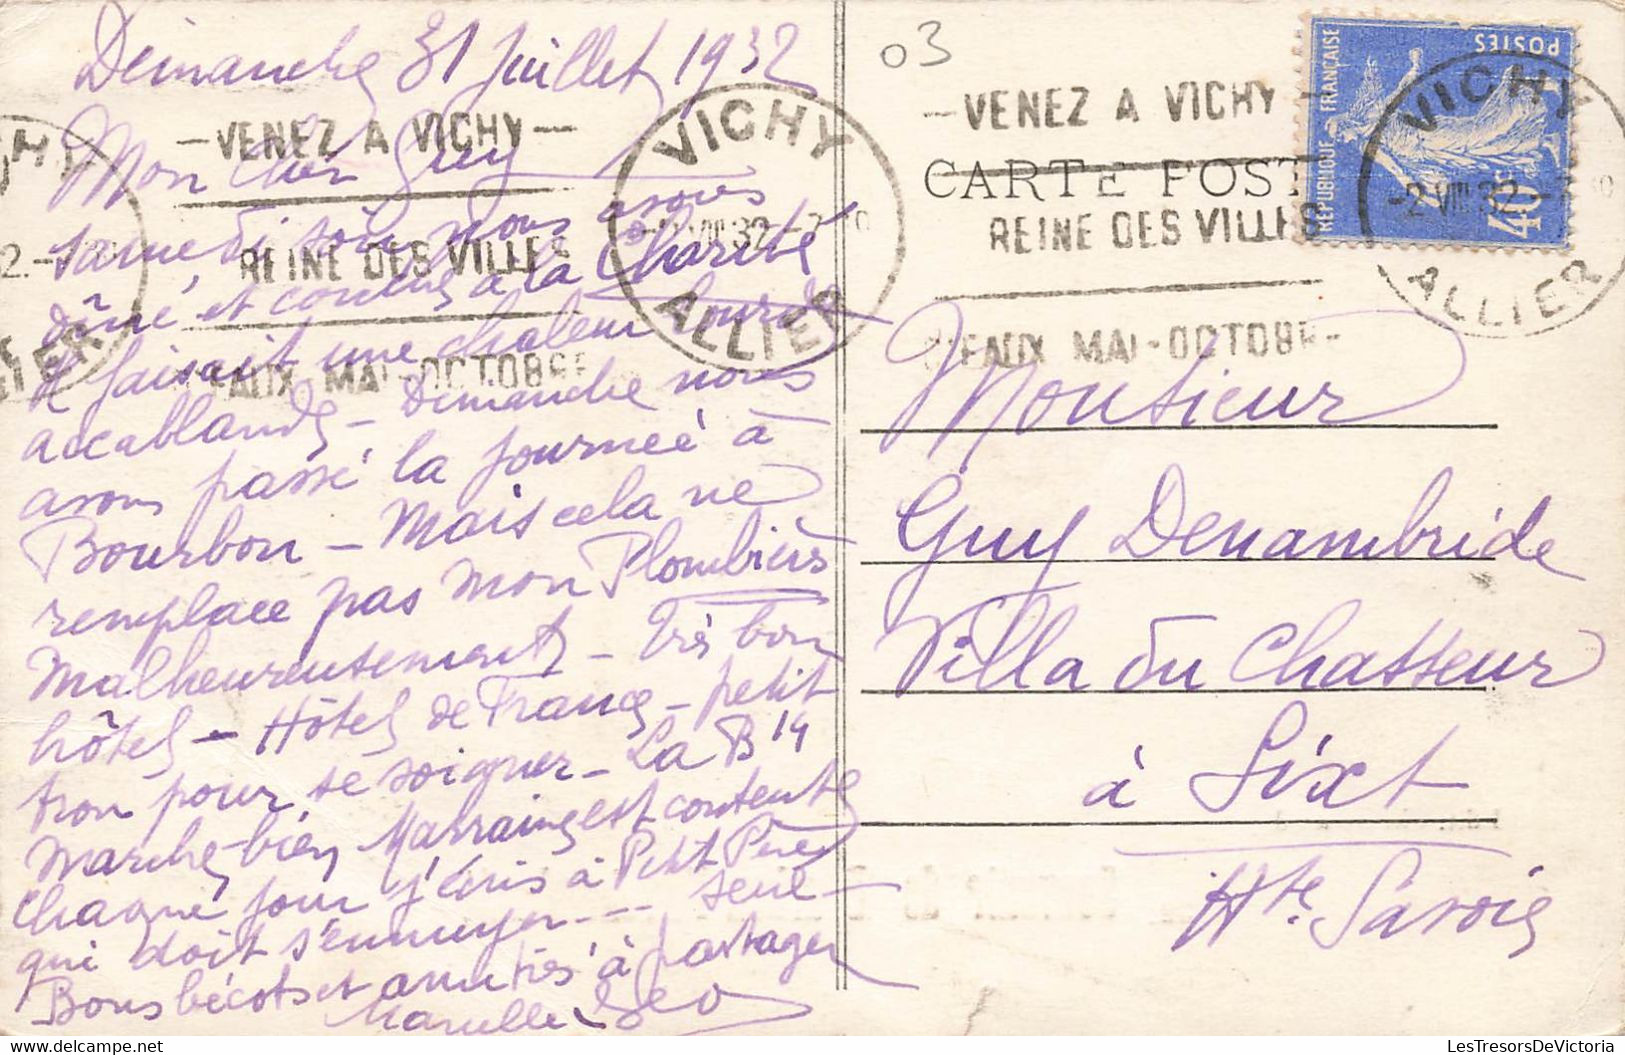 Dimanche 31 Juillet 1932
Mon cher Guy
Samedi soir nous avons
dîné et couché à la Charité
Il faisait une chaleur lourde
accablante - Dimanche nous
avons passé la journée à
Bourbon - Mais cela ne
remplace pas mon Plombières
Malheureusement - Très bon
hôtel - Hôtel de France - petit
trou pour se soigner - La B14
marche bien Marraine est contente
chaque jour j'écris à Petit Père
qui doit s'ennuyer --- seul -
Bons bécots et amitiés à partager
Marcelle - Geo
-VENEZ A VICHY-
REINE DES VILLES
D'EAUX MAI-OCTOBRE
VICHY
-2 VIII 32
ALLIER
03
-VENEZ A VICHY-
CARTE POST
REINE DES VILLES
D'EAUX MAI-OCTOBRE-
POSTES
REPUBLIQUE FRANÇAISE
40c
VICHY
-2 VIII 32
ALLIER
Monsieur
Guy Denambride
Villa du Chasseur
à Sixt
Hte Savoie
delcampe.net
LesTresorsDeVictoria